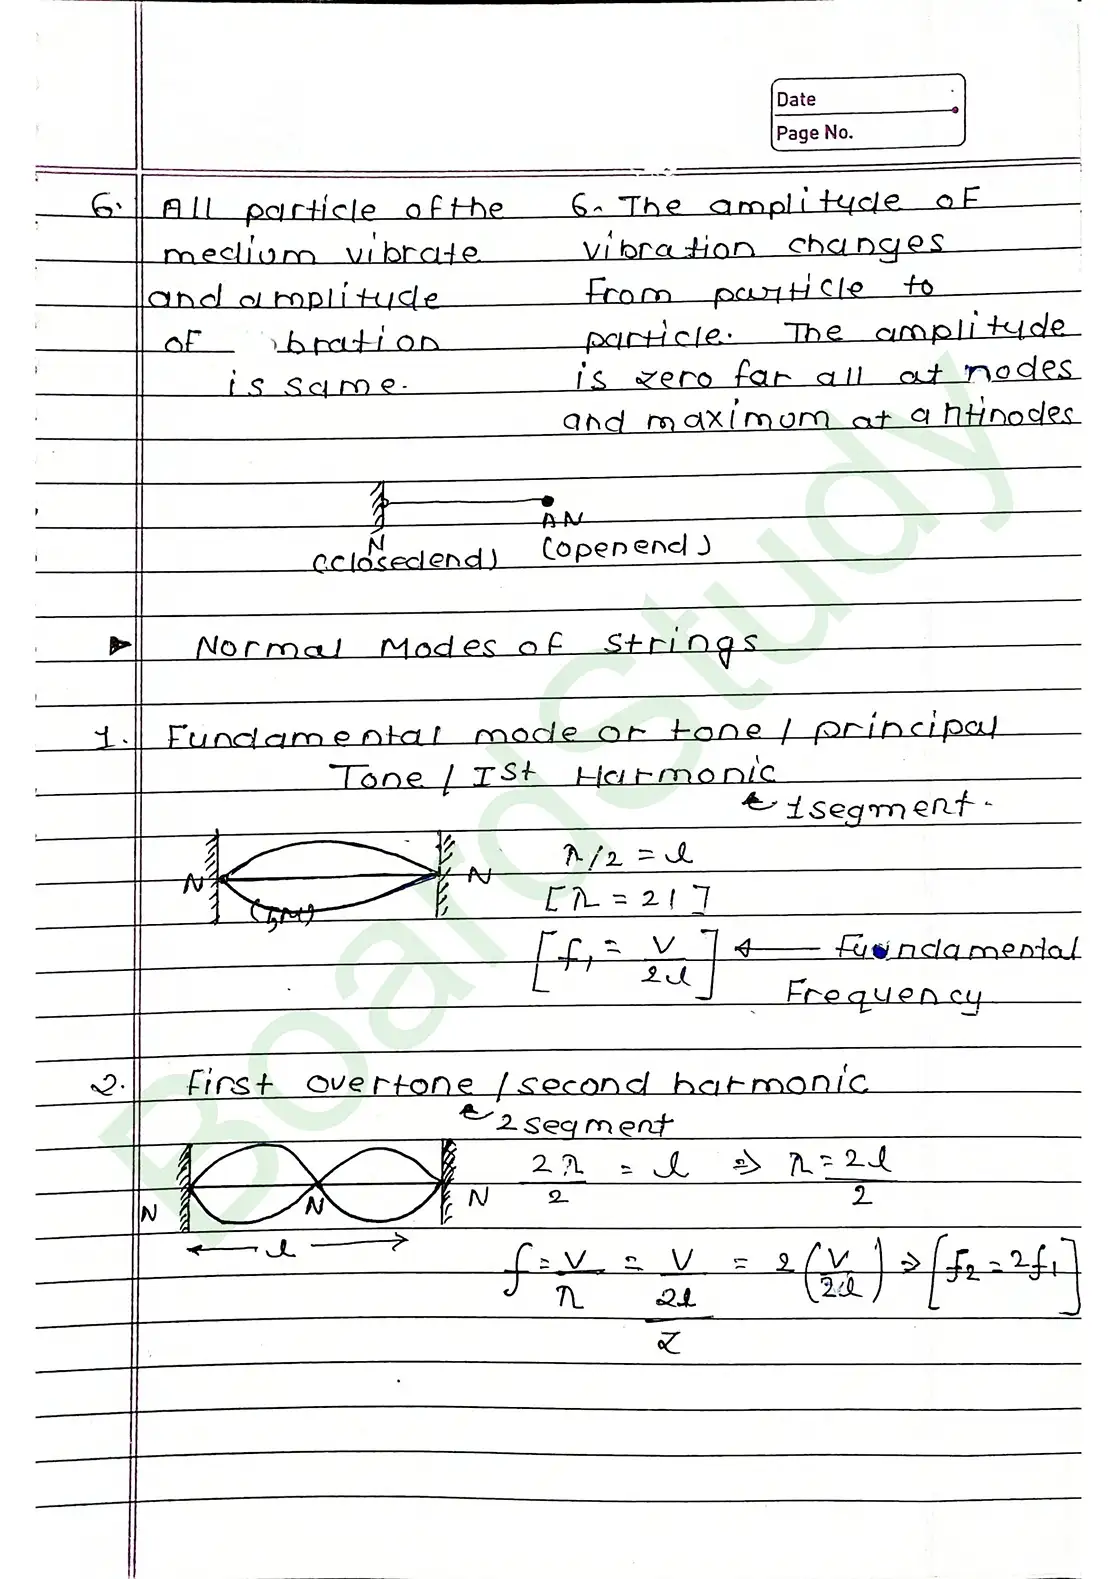 Date
Page No.
6. All particle of the
medium vibrate
and amplitude
of bration
is same.
6. The amplitude of
vibration changes
From particle to
particle. The amplitude
is zero far all at nodes
and maximum at antinodes
N
(closedend)
AN
(openend)
Normal Modes of strings
1. Fundamental mode or tone / principal
Tone / Ist Harmonic
1segment.
N
N
λ/2 = l
[λ = 2l]
[f₁ = V/2l] ← Fuundamental
Frequency
2. First overtone / second harmonic
2 segment
N
N
N
l
2λ/2 = l ⇒ λ = 2l/2
f = V/λ = V/(2l/2) = 2(V/2l) ⇒ [f₂ = 2f₁]
BoardStudy